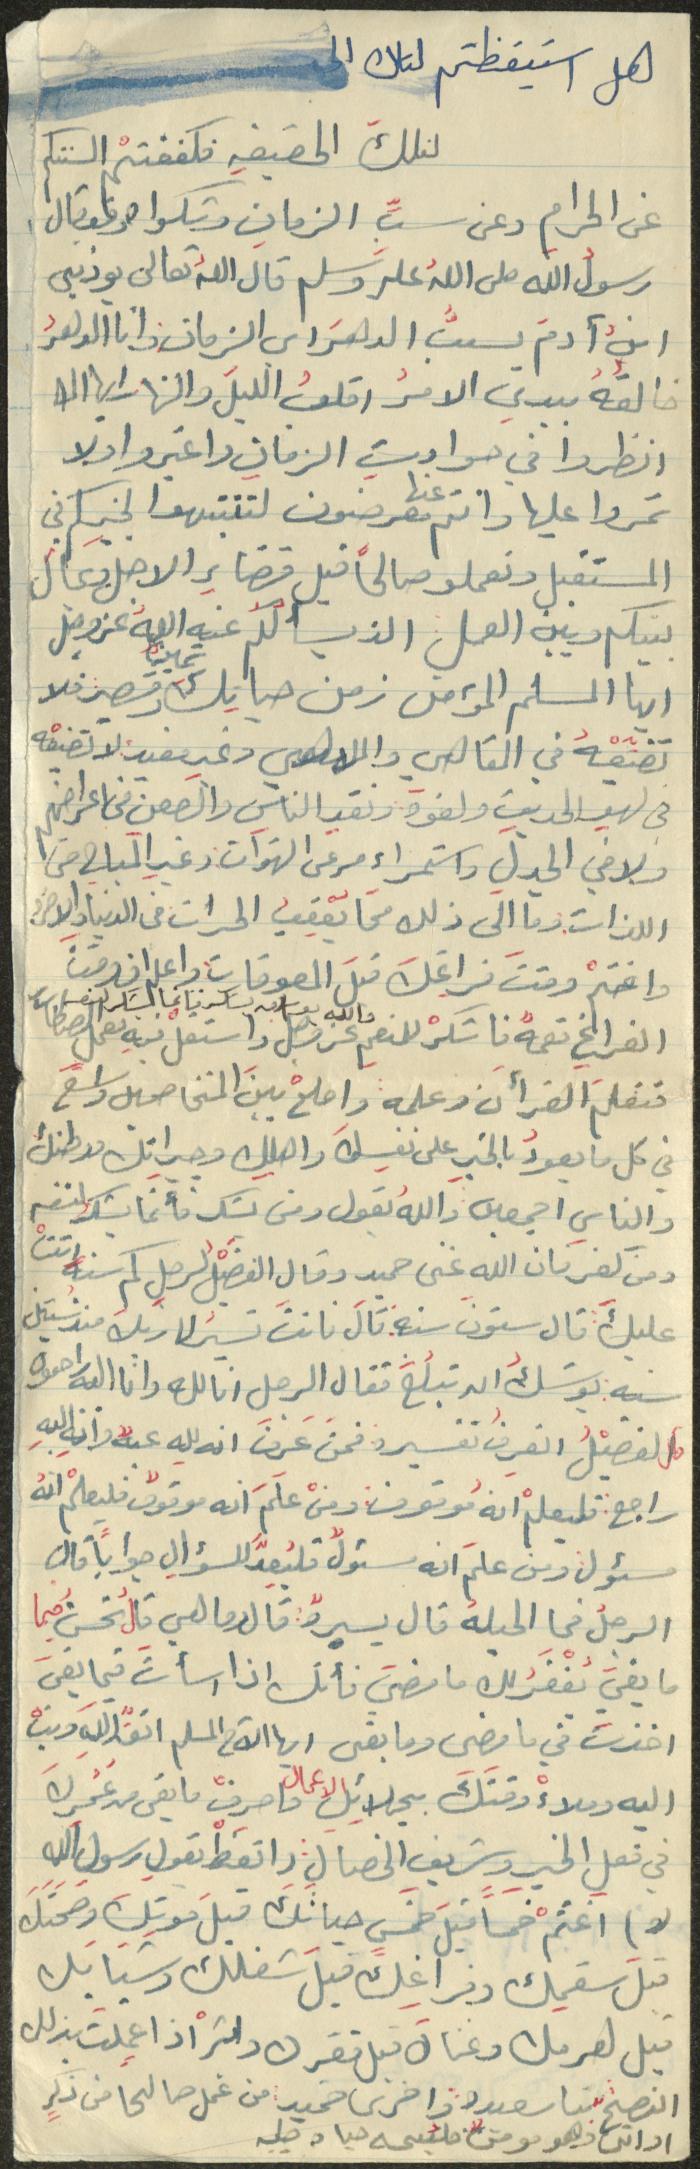 هل استيقظتم لتلك الى
لتلك الحقيقه فكففتم السنتكم
عن الحرام وعن سبِّ الزمان وشكواه قال
رسول الله صلى الله عليه وسلم قال اللهُ تعالى يوذيني
ابنُ آدم يسبُّ الدهرَ اى الزمان وانا الدهرُ
خالقهُ بيدي الامرُ اقلبُ الليلَ والنهار ايها
انظروا في حوادث الزمان واعتبروا ولا
تمروا عليها وانتم عنها معرضون لتنتبهوا لخيركم في
المستقبل وتعملو صالحاً قبل قضاءِ الاجل ويحال
بينكم وبين العمل الذي يسألكم عنه اللهُ عز وجل
ايها المسلم المؤمن زمن حياتك ثمين وقصير فلا
تضيّعْهُ في الملاهي وغير مفيد لا تضيعْه
في لهو الحديث ولغوه ونقد الناس والطعن في اعراضهم
ولا في الجدل واستمراء مرعى الشهوات وغير المباح من
اللذات وما الى ذلك مما يُعْقِبُ الحسرات في الدنيا والاخره
واغتنمْ وقتَ فراغكَ قبلَ المعوقات واعلم ان وقتَ
الفراغِ نعمةٌ فاشكرْ المنعم عز وجل واستعملْ فيه بعمل الصالحات
والله يقول ومن يشكر فانما يشكر لنفسه
فتعلم القرأن وعلمه واصلحْ بينَ المتخاصمين واسعَ
في كل ما يعودُ بالخيرِ على نفسِكَ واهلِك وجيرانِك ووطنكَ
والناسِ اجمعين واللهُ يقول ومن يشكر فأنما يشكرُ لنفسه
ومن كفر فان الله غنى حميد وقال الفضيْلُ لرجل كم سنةً اتتْ
عليكَ قال ستون سنه قالَ فانتَ تسيرُ لربكَ منذُ ستين
سنه يوشكُ ان تبلُغَ فقال الرجل انا لله وانا اليه راجعون
قال الفضيْلُ اتعرِفُ تفسيره فمن عَرَفَ انه للهِ عبدٌ وأنه اليهِ
راجع فليعلمْ انهُ موقوف ومنْ عَلمَ أنه موقوفٌ فليعلمْ انهُ
مسئول ومن علمَ انه مسئولٌ فليُعِدَّ للسؤالِ جواباً قال
الرجلُ فما الحيلةُ قال يسيرةٌ قال وما هي قالُ تحسنُ فيما
ما بقيَ يُغْفَرُ لك ما مضى فأنك اذا اسأتَ فيما بقيَ
اخذتَ في ما مضى وما بقى ايها الاخ المسلم اتقِ اللهَ وتبْ
اليه وملاءْ وقتَكَ بجلائِلِ الاعمال واصرفْ ما بقى من عُمْرِكَ
في فعلِ الخير وشريف الخصالِ واتعظْ بقولِ رسول الله
اغتنمْ خمساً قبلَ خمسٍ حياتَكَ قبلَ موتِكَ وصحتَكَ
قبلَ سقمِك وفراغِكَ قبلَ شغلك وشبابَك
قبل هرمك وغناك قبل فقرك وابشرْ اذا عملت بذلك
النصح دنيا سعيده واخرى حميده من عمل صالحا من ذكرٍ
او انثى وهو مومنٌ فلنحيينه حياة طيبه